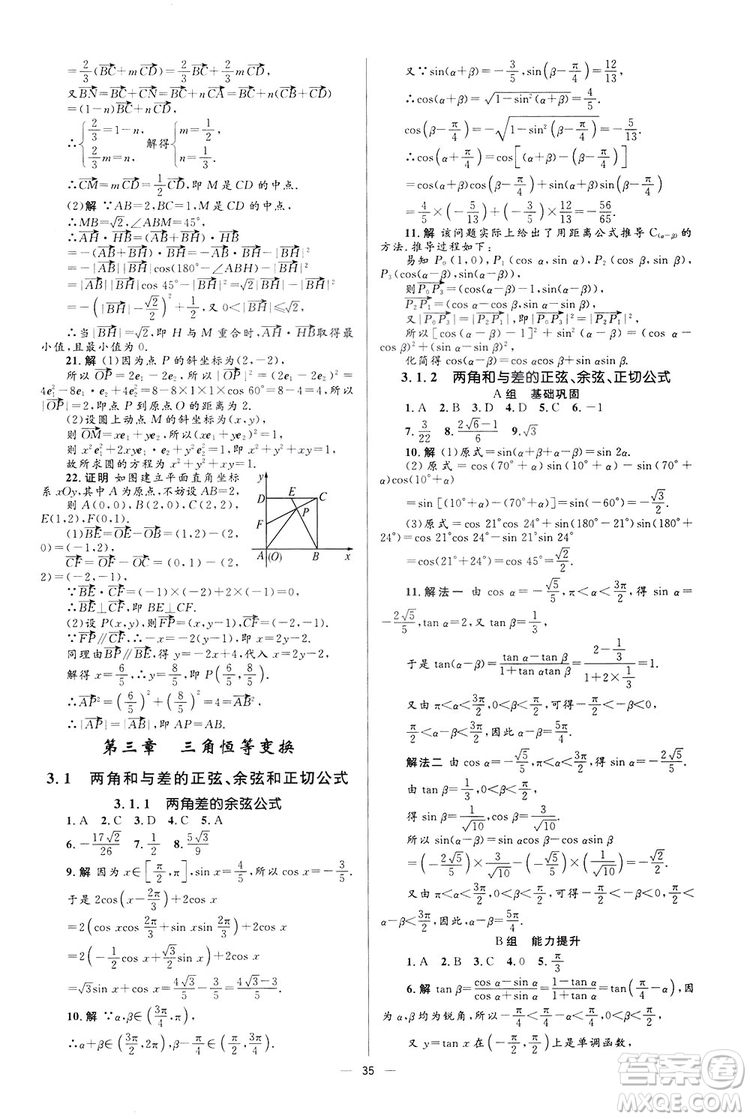 =2/3(BC+mCD)=2/3BC+2/3mCD.
又BN=BC+nCD=BC+nCD
=(1-n)BC+nCD,
∴{2/3=1-n, 2/3m=n, 解得{m=1/2, n=1/3.
∴CM=mCD=1/2CD,即 M 是 CD 的中点.
(2)解 ∵AB=2,BC=1,M 是 CD 的中点,
∴MB=√2,∠ABM=45°,
∴AH·HB=(AB+BH)·HB
=-(AB+BH)·BH=-AB·BH-|BH|²
=-|AB||BH|cos(180°-∠ABH)-|BH|²
=|AB||BH|cos 45°-|BH|²=√2|BH|-|BH|²
=-(|BH|-√2/2)²+1/2,又 0<|BH|≤√2,
∴当|BH|=√2,即 H 与 M 重合时,AH·HB取得最
小值,且最小值为 0.
21.解 (1)因为点 P 的斜坐标为(2,-2),
所以OP=2e₁-2e₂,所以|OP|²=(2e₁-2e₂)²=
4e₁²-8e₁·e₂+4e₂²=8-8×1×1×cos 60°=8-4=4,所
以|OP|=2,即点 P 到原点 O 的距离为 2.
(2)设圆上动点 M 的斜坐标为(x,y),
则OM=xe₁+ye₂,所以(xe₁+ye₂)²=1,
则 x²e₁²+y²e₂²+2xye₁·e₂=1,所以 x²+y²+xy=1,
故所求圆的方程为 x²+y²+xy=1.
22.证明 如图建立平面直角坐标
系 xOy,其中 A 为原点,不妨设 AB=2,
则 A(0,0),B(2,0),C(2,2),
E(1,2),F(0,1).
(1)∵BE=OE-OB=(1,2)-(2,
0)=(-1,2),
CF=OF-OC=(0,1)-(2,
2)=(-2,-1),
∵BE·CF=(-1)×(-2)+2×(-1)=0,
∴BE⊥CF,即 BE⊥CF.
(2)设 P(x,y),则FP=(x,y-1),CF=(-2,-1),
∵FP∥CF,∴-x=-2(y-1),即 x=2y-2,
同理由BP∥BE,得 y=-2x+4,
解得 x=6/5,y=8/5,即 P(6/5,8/5).
∴AP²=(6/5)²+(8/5)²=4=AB²,
∴|AP|=|AB|,即 AP=AB.
y
D
E
C
F
P
A
(O)
B
x
第三章 三角恒等变换
3.1 两角和与差的正弦、余弦和正切公式
3.1.1 两角差的余弦公式
1.A 2.C 3.D 4.C 5.A
6.-17√2/26 7.1/2 8.5√3/9
9.解 因为 x∈[π/2,π],sin x=4/5,所以 cos x=-3/5.
于是 2cos(x-2π/3)+2cos x
=2(cos x cos 2π/3+sin x sin 2π/3)+2cos x
=2(-1/2cos x+√3/2sin x)+2cos x
=√3sin x+cos x=4√3/5-3/5=(4√3-3)/5.
10.解 ∵α,β∈(3π/4,π),
∴α+β∈(3π/2,2π),β-π/4∈(π/2,3π/4).
又∵sin(α+β)=-3/5,sin(β-π/4)=12/13,
∴cos(α+β)=√(1-sin²(α+β))=4/5.
cos(β-π/4)=-√(1-sin²(β-π/4))=-5/13.
∴cos(α+π/4)=cos[(α+β)-(β-π/4)]
=cos(α+β)cos(β-π/4)+sin(α+β)sin(β-π/4)
=4/5×(-5/13)+(-3/5)×12/13=-56/65.
11.解 该问题实际上给出了用距离公式推导 C(α-β)的
方法,推导过程如下:
易知 P₀(1,0),P₁(cos α,sin α),P₂(cos β,sin β),
P₃(cos(α-β),sin(α-β)),
则P₀P₃=(cos(α-β)-1,sin(α-β)),
P₂P₁=(cos α-cos β,sin α-sin β),
又|P₀P₃|=|P₂P₁|,即|P₀P₃|²=|P₂P₁|²,
所以[cos(α-β)-1]²+sin²(α-β)=(cos α-cos β)²+
(sin α-sin β)²,
化简得 cos(α-β)=cos αcos β+sin αsin β.
3.1.2 两角和与差的正弦、余弦、正切公式
A 组 基础巩固
1.A 2.B 3.D 4.D 5.C 6.-1
7.3/22 8.(2√6-1)/6 9.√3
10.解 (1)原式=sin(α+β+α-β)=sin 2α.
(2)原式=cos(70°+α)sin(10°+α)-sin(70°+
α)cos(10°+α)
=sin[(10°+α)-(70°+α)]=sin(-60°)=-√3/2.
(3)原式=cos 21°cos 24°+sin(180°-21°)sin(180°+
24°)=cos 21°cos 24°-sin 21°sin 24°
=cos(21°+24°)=cos 45°=√2/2.
11.解法一 由 cos α=-√5/5,π<α<3π/2,得 sin α=
-2√5/5,tan α=2,又 tan β=1/3,
于是 tan(α-β)=(tan α-tan β)/(1+tan αtan β)=(2-1/3)/(1+2×1/3)=1.
又由 π<α<3π/2,0<β<π/2,可得-3π/2<-β<0,
π/2<α-β<3π/2,因此,α-β=5π/4.
解法二 由 cos α=-√5/5,π<α<3π/2,得 sin α=-2√5/5.
由 tan β=1/3,0<β<π/2,得 sin β=1/√10,cos β=3/√10.
所以 sin(α-β)=sin αcos β-cos αsin β
=(-2√5/5)×(3/√10)-(-√5/5)×(1/√10)=-√2/2.
又由 π<α<3π/2,0<β<π/2,可得-π/2<-β<0,π/2<
α-β<3π/2,因此,α-β=5π/4.
B 组 能力提升
1.A 2.B 3.C 4.0 5.π/4
6.解 tan β=(cos α-sin α)/(cos α+sin α)=(1-tan α)/(1+tan α)=tan(π/4-α),又
α,β 均为锐角,所以-π/4<π/4-α<π/4,0<β<π/2.
又 y=tan x 在(-π/2,π/2)上是单调函数,
35
答案圈